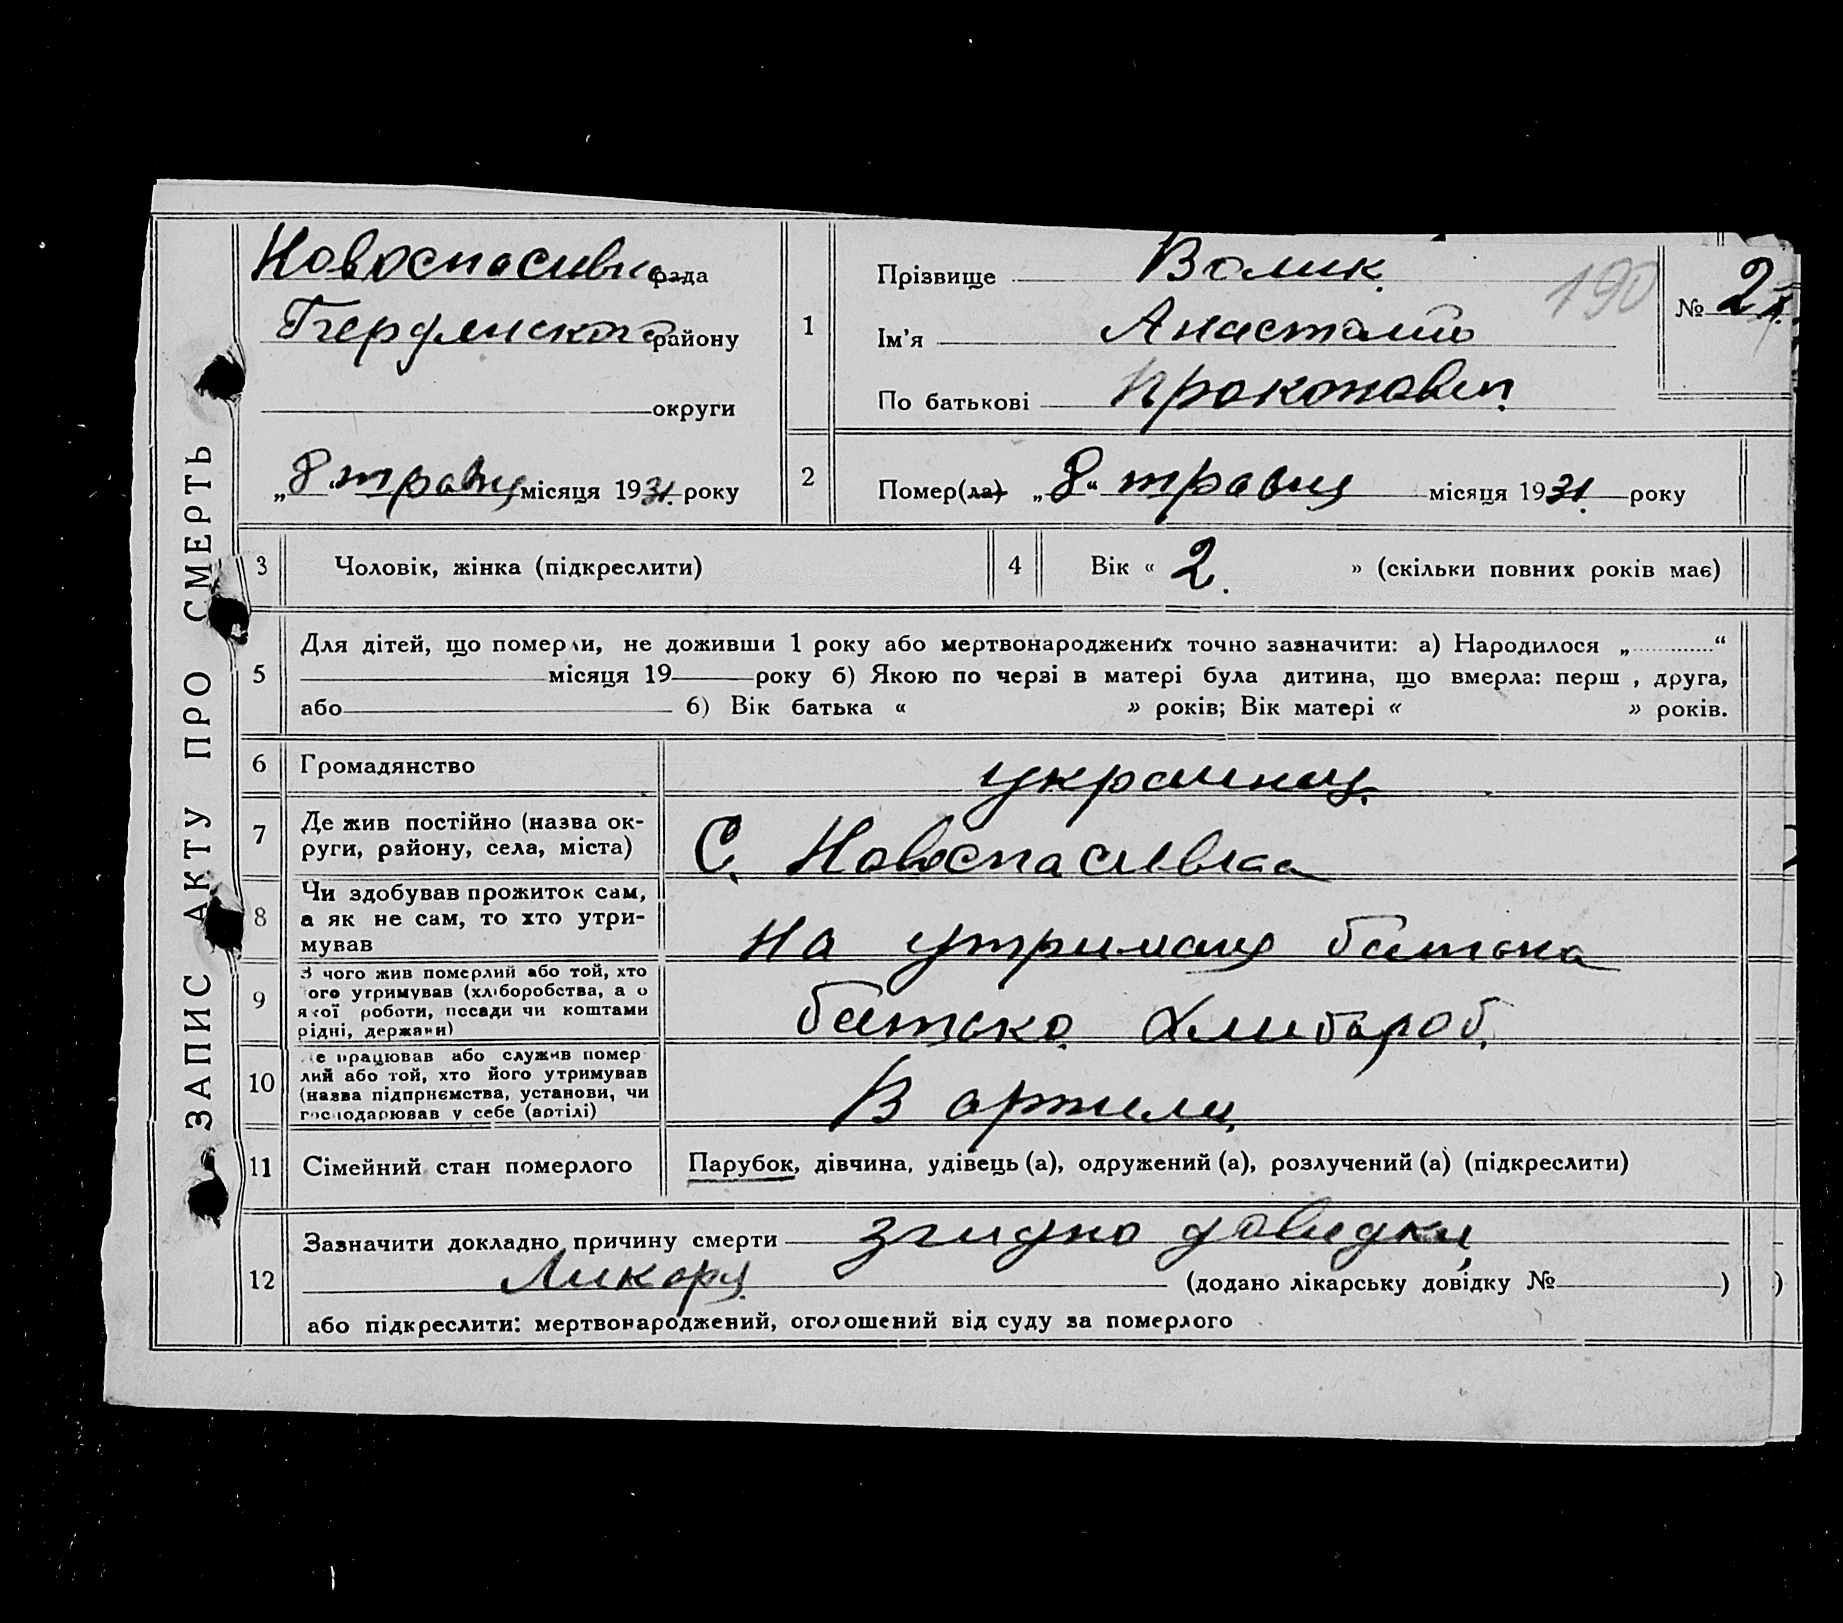 ЗАПИС АКТУ ПРО СМЕРТЬ
Новоспасивка рада
Бердянского району
округи
„8" травця місяця 1931 року
1
Прізвище Волик
Ім'я Анастасий
По батькові Прокопович
190
№ 2
2
Помер(ла) „8" травця місяця 1931 року
3 Чоловік, жінка (підкреслити)
4 Вік « 2. » (скільки повних років має)
5 Для дітей, що померли, не доживши 1 року або мертвонароджених точно зазначити: а) Народилося „ "
місяця 19 року б) Якою по черзі в матері була дитина, що вмерла: перш , друга,
або б) Вік батька « » років; Вік матері « » років.
6 Громадянство украинец
7 Де жив постійно (назва ок-
руги, району, села, міста) С. Новоспасивка
8 Чи здобував прожиток сам,
а як не сам, то хто утри-
мував на утриманя батька
9 З чого жив померлий або той, хто
ого утримував (хліборобства, а о
якої роботи, посади чи коштами
рідні, держави) батько хлибароб.
10 е працював або служив помер
лий або той, хто його утримував
(назва підприємства, установи, чи
господарював у себе (артілі) В артили.
11 Сімейний стан померлого Парубок, дівчина, удівець (а), одружений (а), розлучений (а) (підкреслити)
12 Зазначити докладно причину смерти згидно довидки
Ликаря (додано лікарську довідку № )
або підкреслити: мертвонароджений, оголошений від суду за померлого